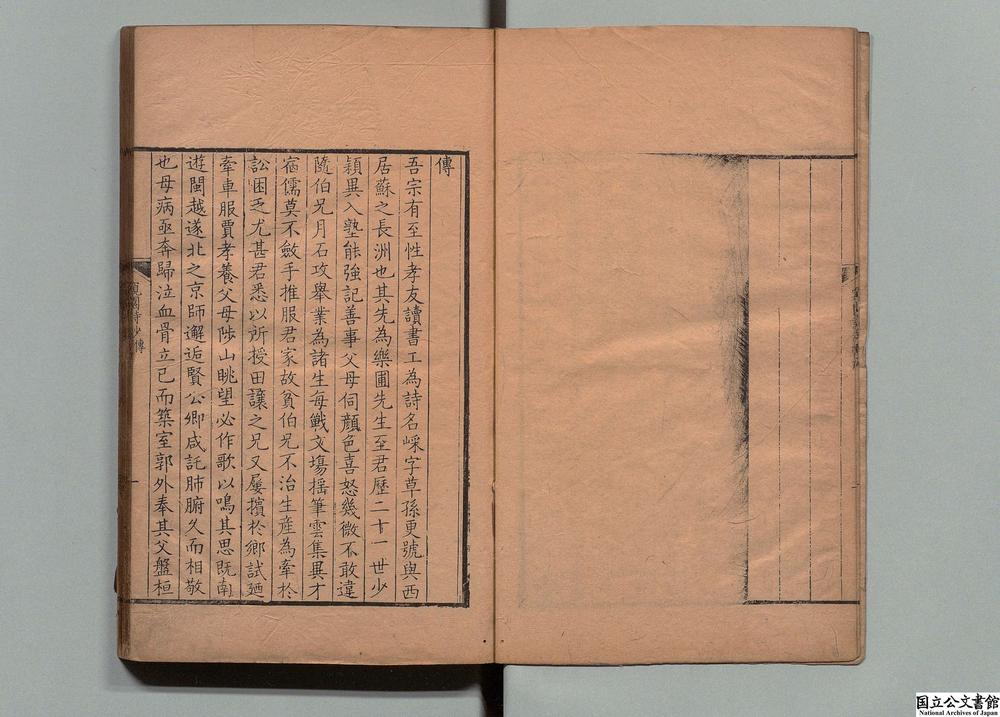 傳
吾宗有至性孝友讀書工為詩名綵字草孫更號與西
居蘇之長洲也其先為樂圃先生至君歷二十一世少
穎異入塾能強記善事父母伺顏色喜怒幾微不敢違
隨伯兄月石攻舉業為諸生每戰文塲揺筆雲集異才
宿儒莫不斂手推服君家故貧伯兄不治生産為牽於
訟困乏尤甚君悉以所授田讓之兄又屢擯於鄉試廼
牽車服賈孝養父母陟山眺望必作歌以鳴其思既南
遊閩越遂北之京師邂逅賢公卿咸託肺腑久而相敬
也母病亟奔歸泣血骨立已而築室郭外奉其父盤桓
國立公文書館
National Archives of Japan